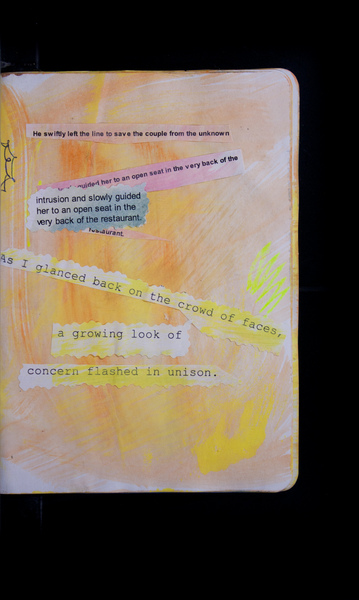 He swiftly left the line to save the couple from the unknown
guided her to an open seat in the very back of the
intrusion and slowly guided
her to an open seat in the
very back of the restaurant.
restaurant.
As I glanced back on the crowd of faces,
a growing look of
concern flashed in unison.